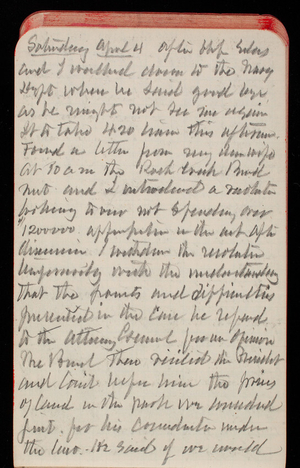 Saturday April 4 after bkf
and I walked down to the Navy
Dept when he said good bye
as he might not see me again
is to take 4.20 train this afternoon.
Found a letter from my
at 10 am the Rock Creek Board
met and I introduced a resolution
looking to our not spending over
1200000 appropriation in the act after
discussion I withdrew the resolution
temporarily with the understanding
that the points and difficulties
presented in the case be referred
to the Attorney General for an opinion
The Board then visited the President
and laid before him the prices
of land in the park we considered
just. for his consideration under
the law. He said if we would